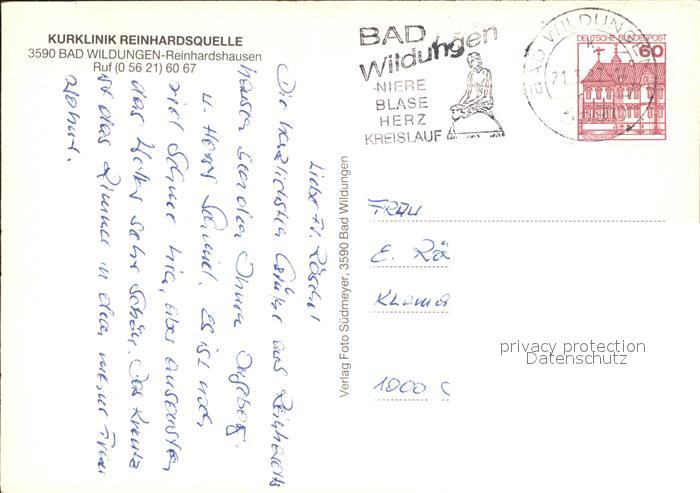 KURKLINIK REINHARDSQUELLE
3590 BAD WILDUNGEN-Reinhardshausen
Ruf (0 56 21) 60 67
BAD
Wildungen
-NIERE
BLASE
HERZ
KREISLAUF
BAD WILDUNGEN
DEUTSCHE BUNDESPOST
60
Liebe Fr. Röschel
Die herzlichsten Grüße aus Reinhards-
hausen senden Ihnen Ingeborg
u. Herr Schmid. Es ist noch
viel Schnee hier, aber ansonsten
das Wetter sehr schön. Das Kreutz
ist das Zimmer in dem meine Frau
wohnt.
Verlag Foto Südmeyer, 3590 Bad Wildungen
FRAU
E. Rö
1000
privacy protection
Datenschutz